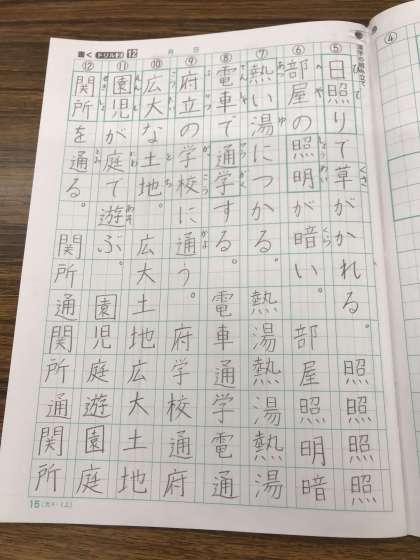 ④
⑤日照りで草がかれる。照照照照
⑥部屋の照明が暗い。部屋照明暗
⑦熱い湯につかる。熱湯熱湯熱湯
⑧電車で通学する。電車通学電通
⑨府立の学校に通う。府学校通府
⑩広大な土地。広大土地広大土地
⑪園児が庭で遊ぶ。園児庭遊園庭
⑫関所を通る。関所通関所通関所
書く ドリル 12 月 日
15